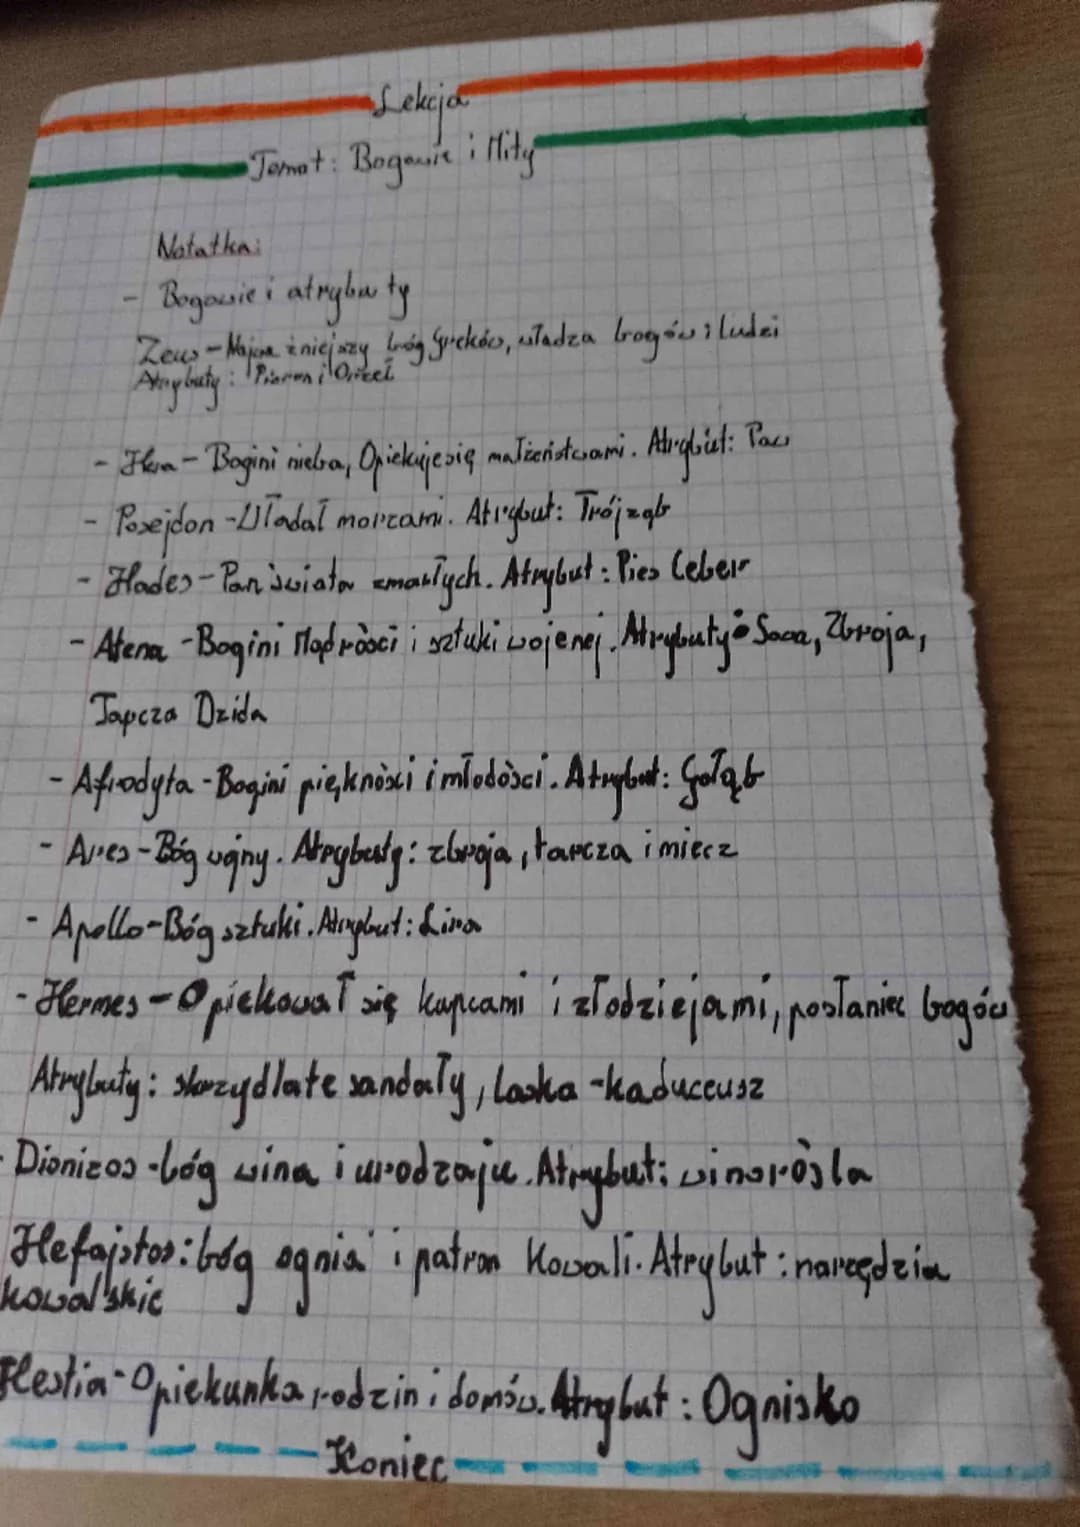 Lekcja
Temat: Bogowie i Mity
Notatka:
- Bogowie i atrybuty
Zeus - Najważniejszy bóg Greków, władza bogów i ludzi
Atrybuty: Piorun i Orzeł
- Hera - Bogini nieba, Opiekuje się małżeństwami. Atrybut: Paw
- Posejdon - Władał morzami. Atrybut: Trójząb
- Hades - Pan świata zmarłych. Atrybut: Pies Ceber
- Atena - Bogini Mądrości i sztuki wojenej. Atrybuty: Sowa, Zbroja,
Tarcza Dzida
- Afrodyta - Bogini piękności i młodości. Atrybut: Gołąb
- Ares - Bóg wojny. Atrybuty: zbroja, tarcza i miecz
- Apollo - Bóg sztuki. Atrybut: Lira
- Hermes - Opiekował się kupcami i złodziejami, posłaniec bogów
Atrybuty: skrzydlate sandały, laska - kaduceusz
- Dionizos - bóg wina i urodzaju. Atrybut: winorośla
Hefajstos: bóg ognia i patron Kowali. Atrybut: narzędzia
kowalskie
Hestia - Opiekunka rodzin i domów. Atrybut: Ognisko
Koniec